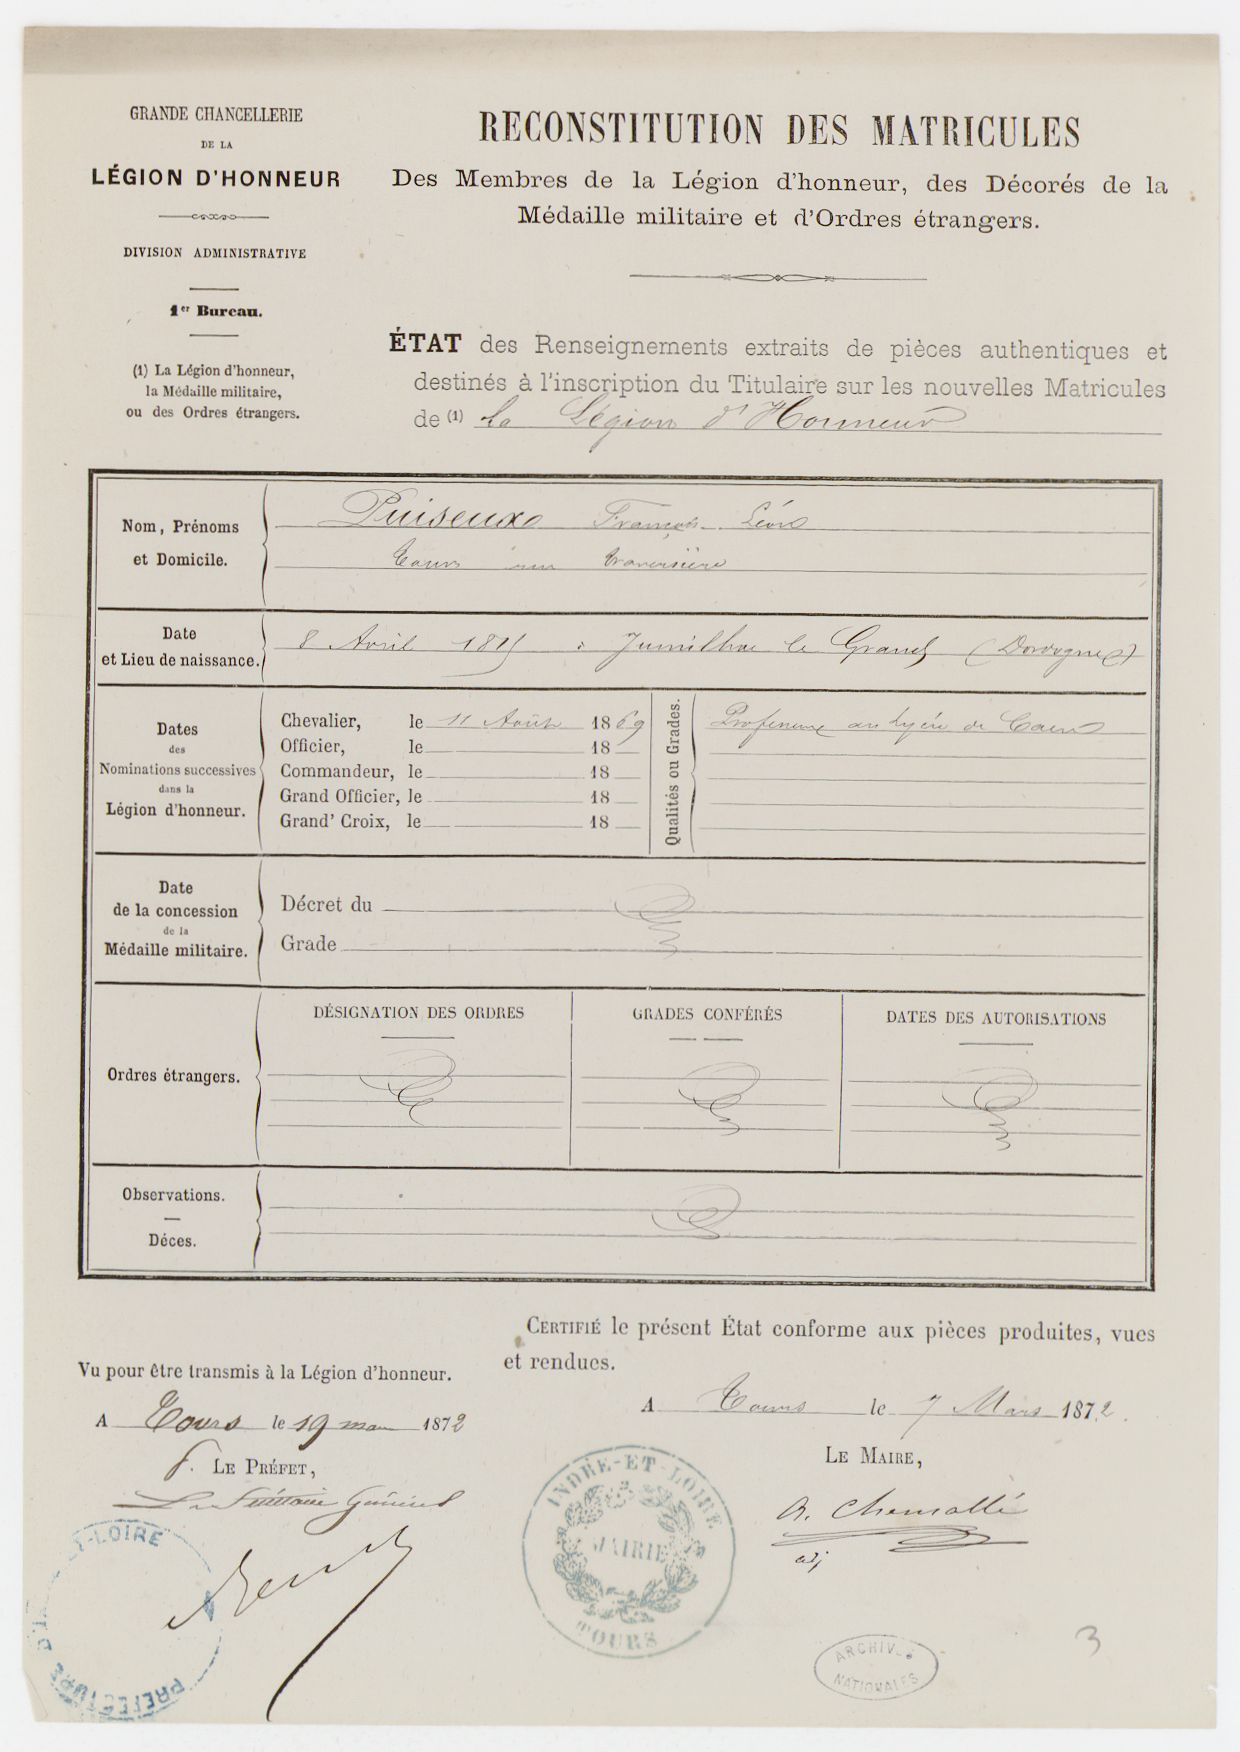 GRANDE CHANCELLERIE
DE LA
LÉGION D'HONNEUR
DIVISION ADMINISTRATIVE
1er Bureau.
(1) La Légion d'honneur,
la Médaille militaire,
ou des Ordres étrangers.
RECONSTITUTION DES MATRICULES
Des Membres de la Légion d'honneur, des Décorés de la
Médaille militaire et d'Ordres étrangers.
ÉTAT des Renseignements extraits de pièces authentiques et
destinés à l'inscription du Titulaire sur les nouvelles Matricules
de (1) la Légion d'Honneur
Nom, Prénoms
et Domicile.
Puiseux François Léon
Tours rue traversière
Date
et Lieu de naissance.
8 Avril 1815 à Jumilhac le Grand (Dordogne)
Dates
des
Nominations successives
dans la
Légion d'honneur.
Chevalier, le 11 Août 1869
Officier, le 18
Commandeur, le 18
Grand Officier, le 18
Grand' Croix, le 18
Qualités ou Grades.
Professeur au lycée de Caen
Date
de la concession
de la
Médaille militaire.
Décret du
Grade
Ordres étrangers.
DÉSIGNATION DES ORDRES
GRADES CONFÉRÉS
DATES DES AUTORISATIONS
Observations.
Déces.
CERTIFIÉ le présent État conforme aux pièces produites, vues
et rendues.
A Tours le 7 Mars 1872.
LE MAIRE,
adj
Vu pour être transmis à la Légion d'honneur.
A Tours le 19 mars 1872
P. LE PRÉFET,
Le Secrétaire Général
INDRE-ET-LOIRE
MAIRIE
TOURS
PREFECTURE D'INDRE-ET-LOIRE
ARCHIVES
NATIONALES
3